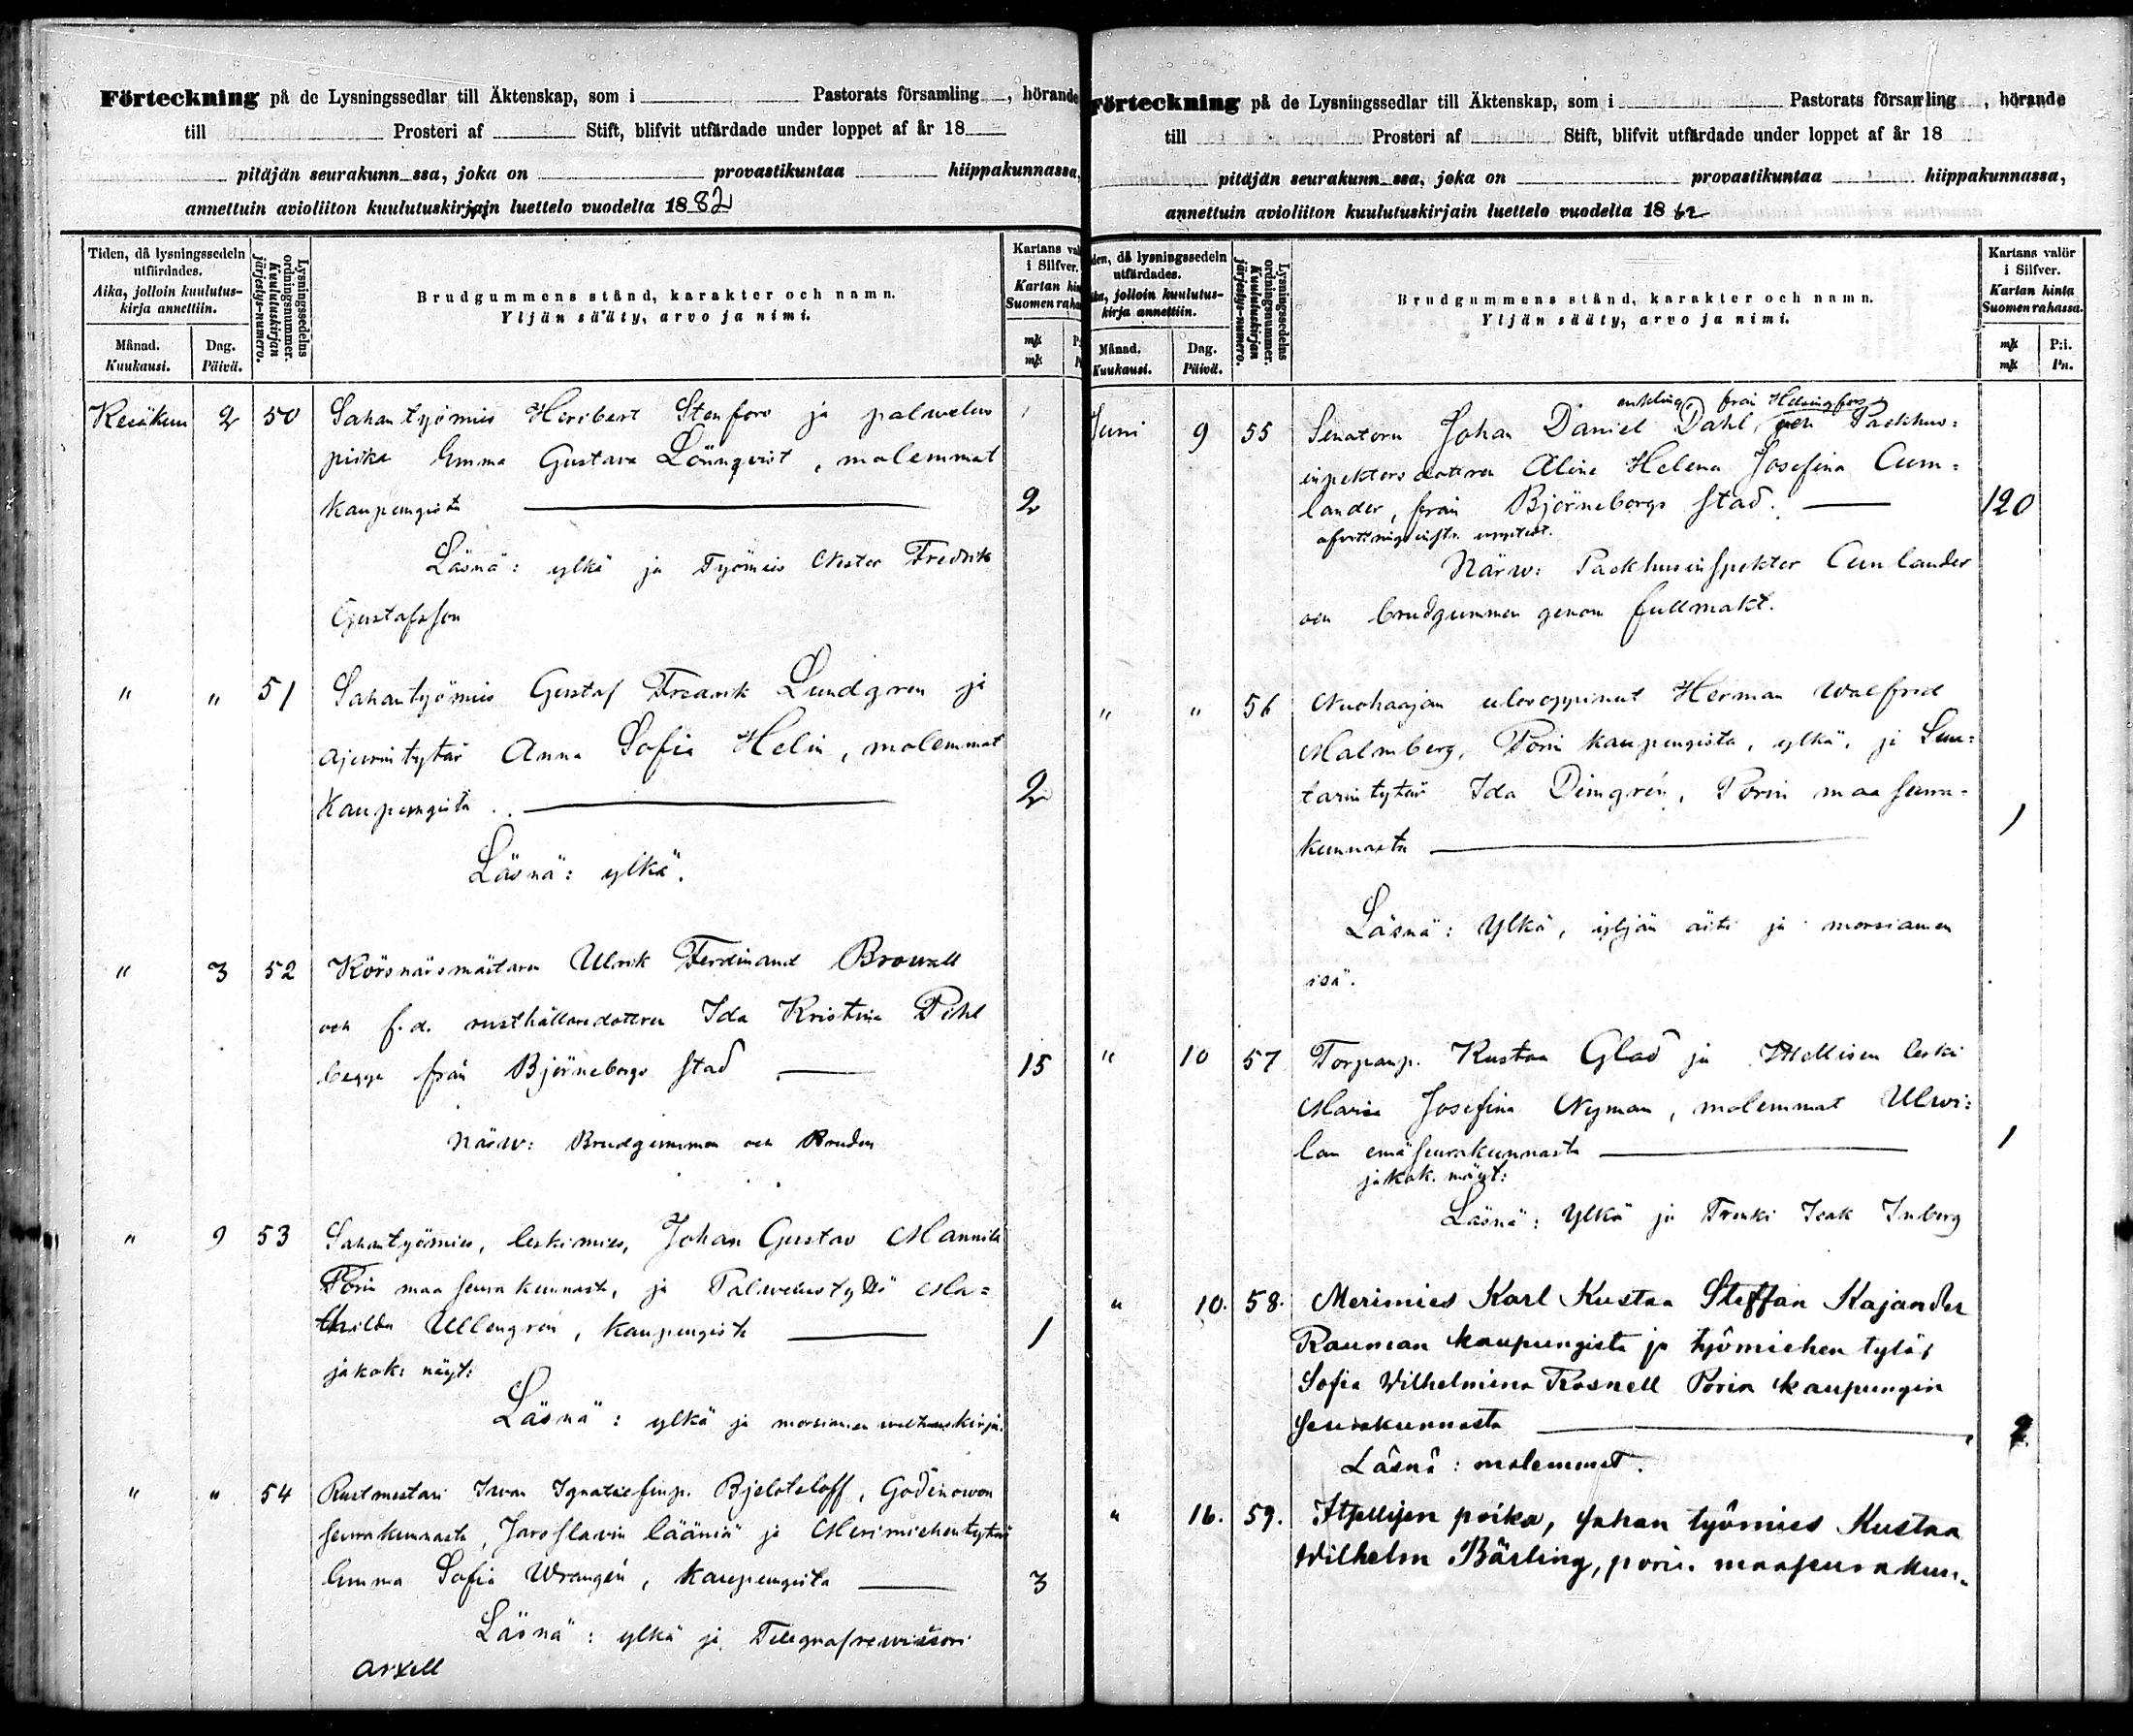 Förteckning på de Lysningssedlar till Äktenskap, som i Pastorats församling, hörande
till Prosteri af Stift, blifvit utfärdade under loppet af år 18
pitäjän seurakunn ssa, joka on provastikuntaa hiippakunnassa,
annettuin avioliiton kuulutuskirjain luettelo vuodelta 1882
Tiden, då lysningssedeln utfärdades.
Aika, jolloin kuulutus-kirja annettiin.
Månad. Dag.
Kuukausi. Päivä.
Lysningssedelns ordningsnummer.
Kuulutuskirjan järjestys-numero.
Brudgummens stånd, karakter och namn.
Yljän sääty, arvo ja nimi.
Kartans val
i Silfver.
Kartan hin
Suomen raha
mk P
mk P
Kesäkuu 2 50 Sahantyömies Heribert Stenfors ja palvelus
piika Emma Gustava Lönnqvist, molemmat
kaupungista 2
Läsnä: ylkä ja Työmies Nestor Fredrik
Gustafsson
" " 51 Sahantyömies Gustaf Fredrik Lundgren ja
ajurintytär Anna Sofia Helin, molemmat
kaupungista 2
Läsnä: ylkä.
" 3 52 Ulrik Ferdinand Browall
och f.d. rusthållaredottren Ida Kristina Pihl
begge från Björneborgs stad 15
Närw: Brudgummen och Bruden
" 9 53 Sahantyömies, leskimies, Johan Gustav Mannila
Porin maaseurakunnasta, ja Palwelustyttö Ma=
thilda Ullengrén, kaupungista 1
jakok: näyt:
Läsnä: ylkä ja morsiamen waltuuskirja.
" " 54 Iwan Ignatiefinp. Bjeloteloff, Godinowon
seurakunnasta, Jaroslavin lääniä ja Merimiehentytär
Emma Sofia Wrangén, kaupungista 3
Läsnä: ylkä ja Telegrafrewisori
Arxell
Förteckning på de Lysningssedlar till Äktenskap, som i Pastorats församling, hörande
till Prosteri af Stift, blifvit utfärdade under loppet af år 18
pitäjän seurakunn ssa, joka on provastikuntaa hiippakunnassa,
annettuin avioliiton kuulutuskirjain luettelo vuodelta 1882
den, då lysningssedeln utfärdades.
ika, jolloin kuulutus-kirja annettiin.
Månad. Dag.
Kuukausi. Päivä.
Lysningssedelns ordningsnummer.
Kuulutuskirjan järjestys-numero.
Brudgummens stånd, karakter och namn.
Yljän sääty, arvo ja nimi.
Kartans valör
i Silfver.
Kartan hinta
Suomen rahassa.
mk P:i.
mk Pn.
enkling, från Helsingfors
Juni 9 55 Senatorn Johan Daniel Dahl och Packhus=
inspektorsdottren Alina Helena Josefina Cum=
lander, från Björneborgs stad. 120
Närw: Packhusinspektor Cumlander
och brudgummen genom fullmakt.
" " 56 Nuohoojan Herman Walfred
Malmberg, Porin kaupungista, ylkä, ja Suu=
tarintytär Ida Dimgrén, Porin maaseura=
kunnasta 1
Läsnä: Ylkä, yljän äiti ja morsiamen
isä.
" 10 57 Torpanp. Kustaa Glad ja Itsellisen leski
Maria Josefina Nyman, molemmat Ulwi=
lan emäseurakunnasta 1
jakok. näyt:
Läsnä: Ylkä ja Trenki Isak Inberg
" 10. 58. Merimies Karl Kustaa Steffan Kajander
Rauman kaupungista ja työmiehen tytär
Sofia Wilhelmina Rosnell Porin kaupungin
seurakunnasta 2
Läsnä: molemmat.
" 16. 59. Itsellisen poika, sahan työmies Kustaa
Wilhelm Bärling, porin maaseurakun-